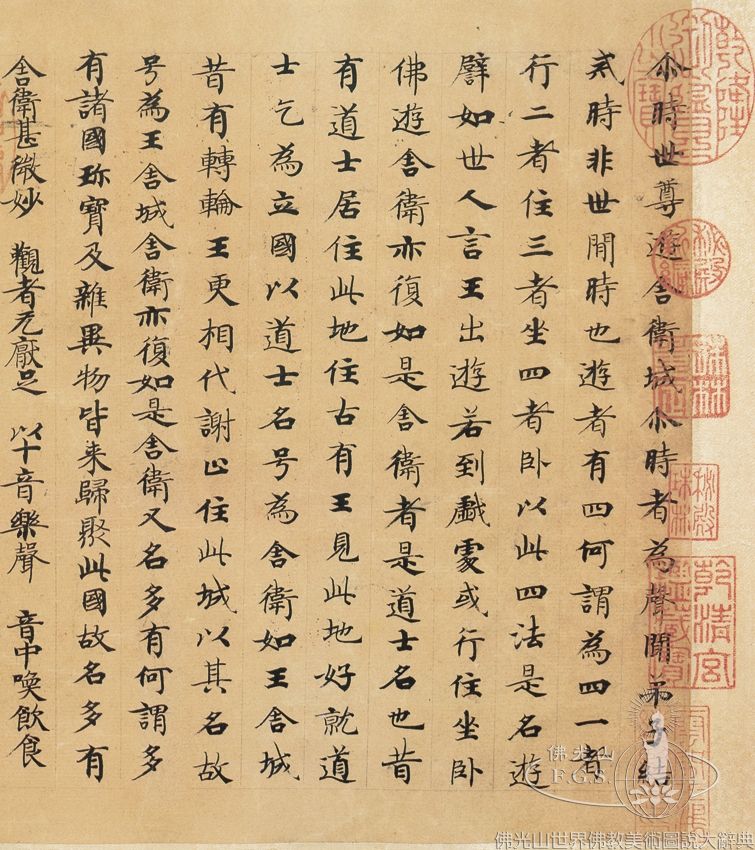 尒時世尊遊舍衛城尒時者為聲聞弟子結
戒時非世閒時也遊者有四何謂為四一者
行二者住三者坐四者卧以此四法是名遊
譬如世人言王出遊若到戲處或行住坐卧
佛遊舍衛亦復如是舍衛者是道士名也昔
有道士居住此地住古有王見此地好就道
士乞為立國以道士名号為舍衛如王舍城
昔有轉輪王更相代謝止住此城以其名故
号為王舍城舍衛亦復如是舍衛又名多有何謂多
有諸國珎寶及雜異物皆来歸聚此國故名多有
舍衛甚微妙 觀者无厭足 以十音樂聲 音中喚飲食
秘殿新編
秘殿珠林
乾清宮鑒藏寶
佛光山
F.G.S.
佛光山世界佛教美術圖說大辭典